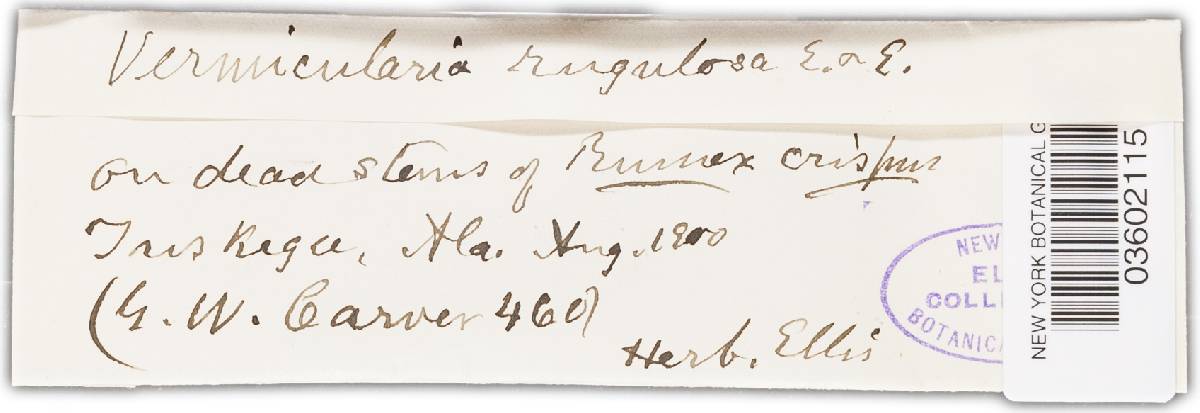 Vermicularia rugulosa E. & E.
on dead stems of Rumex crispus
Tuskegee, Ala. Aug. 1900
(G. W. Carver 460)
Herb. Ellis
NEW
EL
COLLE
BOTANICA
NEW YORK BOTANICAL G
03602115